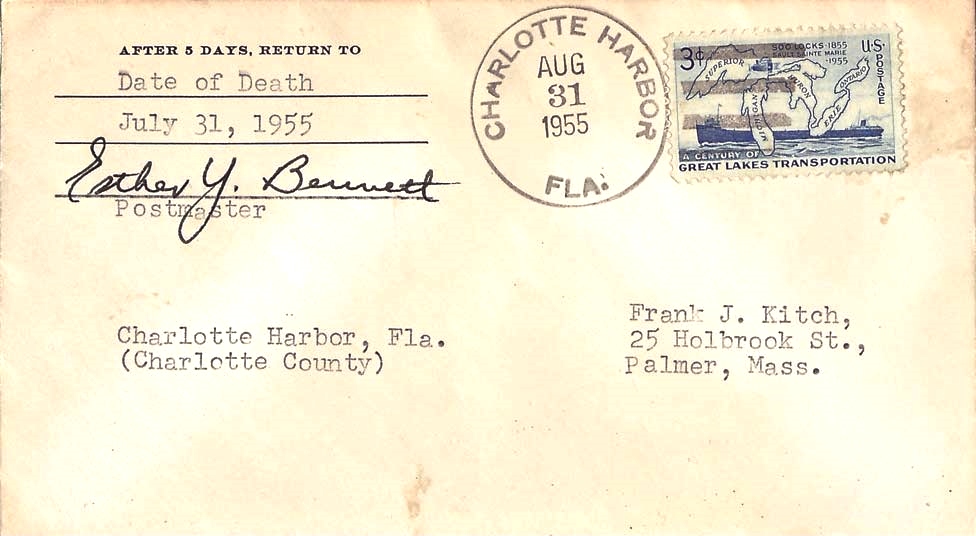 AFTER 5 DAYS, RETURN TO
Date of Death
July 31, 1955
Esther Y. Bennett
Postmaster
CHARLOTTE HARBOR
AUG
31
1955
FLA.
3¢
SOO LOCKS·1855
SAULT SAINTE MARIE
·1955
U.S. POSTAGE
SUPERIOR
MICHIGAN
HURON
ERIE
ONTARIO
A CENTURY OF
GREAT LAKES TRANSPORTATION
Charlotte Harbor, Fla.
(Charlotte County)
Frank J. Kitch,
25 Holbrook St.,
Palmer, Mass.